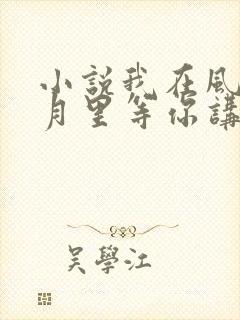 小説我在風
月里等你講
吳學江